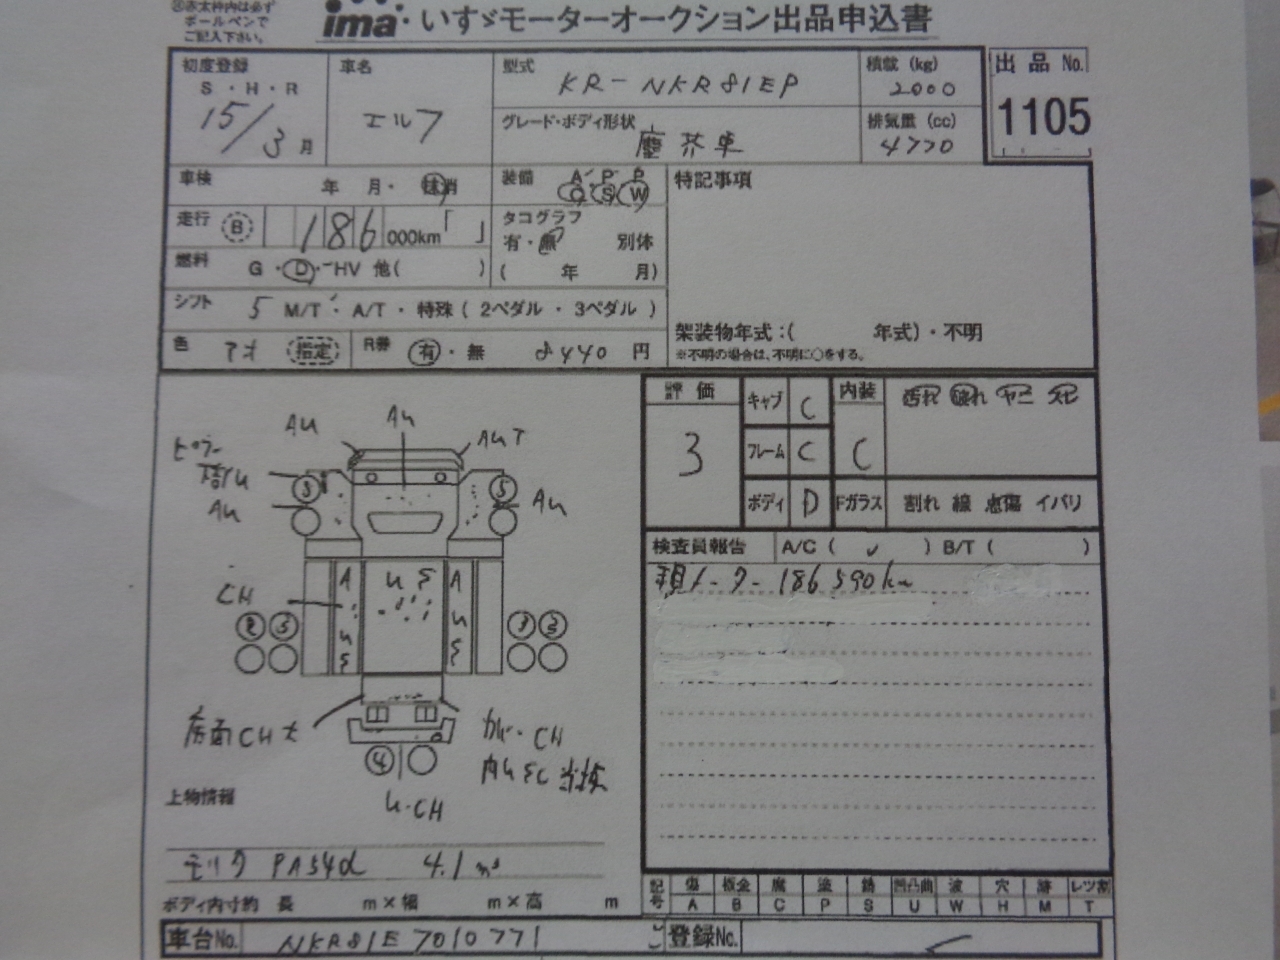 ※赤太枠内は必ず
ボールペンで
ご記入下さい。
ima・いすゞモーターオークション出品申込書
初度登録 車名 型式 KR-NKR81EP 積載 (kg) 2000 出品 No.
S・H・R
15/3月 エルフ グレード・ボディ形状 塵芥車 排気量 (cc) 4770 1105
車検 年 月・抹消 装備 A・P・P 特記事項
C S W
走行 B 186 000km「 」 タコグラフ
有・無 別体
燃料 G・D・HV 他( ) ( 年 月)
シフト 5 M/T・A/T・特殊 ( 2ペダル ・ 3ペダル ) 架装物年式：( 年式)・不明
色 アオ 指定 R番 有・無 8440 円 ※不明の場合は、不明に○をする。
評価 キャブ C 内装 汚れ 破れ ヤニ スレ
3 フレーム C C
ボディ D Fガラス 割れ 線 点傷 イバリ
AU AU AUT
ピラー
AU AU
3 5
A U A
CH U
2 5 3 3
底面CH大 CH
4
U・CH
検査員報告 A/C ( ✓ ) B/T ( )
現メーター 186590km
上物情報
モリタ PA54d 4.1m³
ボディ内寸約 長 m×幅 m×高 m
記号 傷 板金 腐 塗 錆 凹凸曲 波 穴 跡 レツ割
A B C P S U W H M T
車台No. NKR81E7010771 登録No.